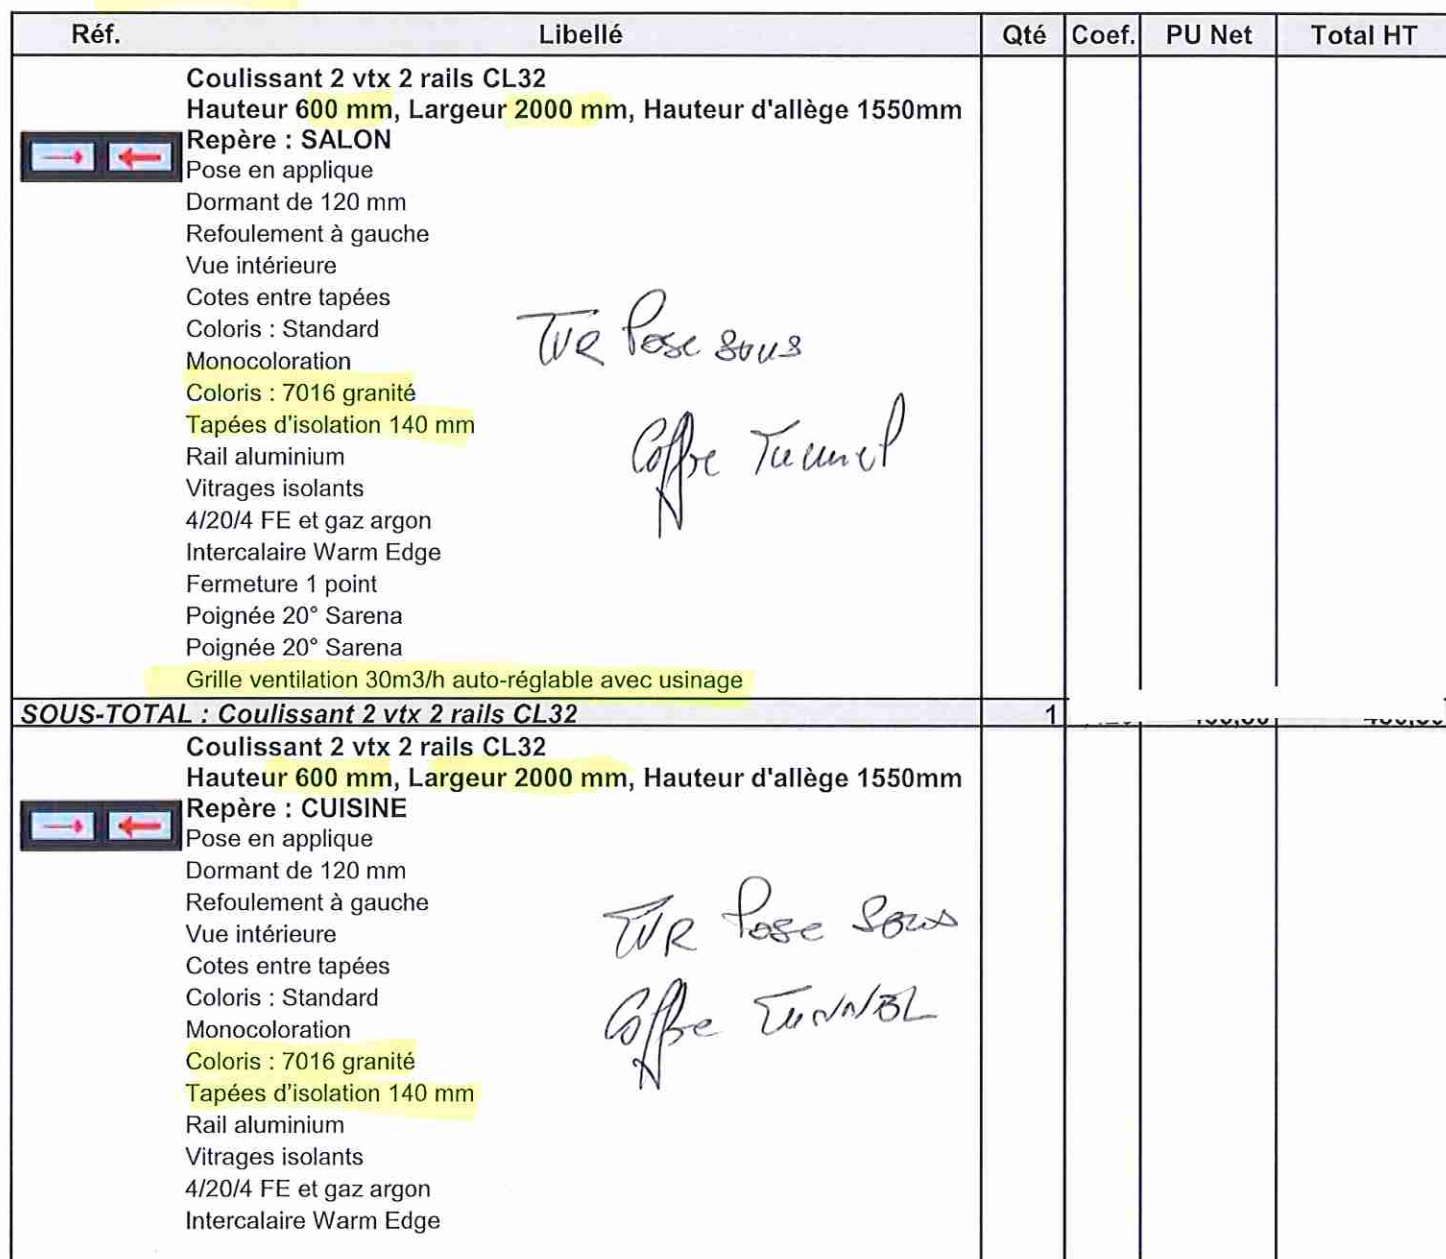 Réf. Libellé Qté Coef. PU Net Total HT
Coulissant 2 vtx 2 rails CL32
Hauteur 600 mm, Largeur 2000 mm, Hauteur d'allège 1550mm
Repère : SALON
Pose en applique
Dormant de 120 mm
Refoulement à gauche
Vue intérieure
Cotes entre tapées
Coloris : Standard
Monocoloration
TVR Pose sous
Coloris : 7016 granité
Tapées d'isolation 140 mm
Coffre Tunnel
Rail aluminium
Vitrages isolants
4/20/4 FE et gaz argon
Intercalaire Warm Edge
Fermeture 1 point
Poignée 20° Sarena
Poignée 20° Sarena
Grille ventilation 30m3/h auto-réglable avec usinage
SOUS-TOTAL : Coulissant 2 vtx 2 rails CL32 1
Coulissant 2 vtx 2 rails CL32
Hauteur 600 mm, Largeur 2000 mm, Hauteur d'allège 1550mm
Repère : CUISINE
Pose en applique
Dormant de 120 mm
Refoulement à gauche
Vue intérieure
TVR Pose Sous
Cotes entre tapées
Coloris : Standard
Monocoloration
Coffre TUNNEL
Coloris : 7016 granité
Tapées d'isolation 140 mm
Rail aluminium
Vitrages isolants
4/20/4 FE et gaz argon
Intercalaire Warm Edge